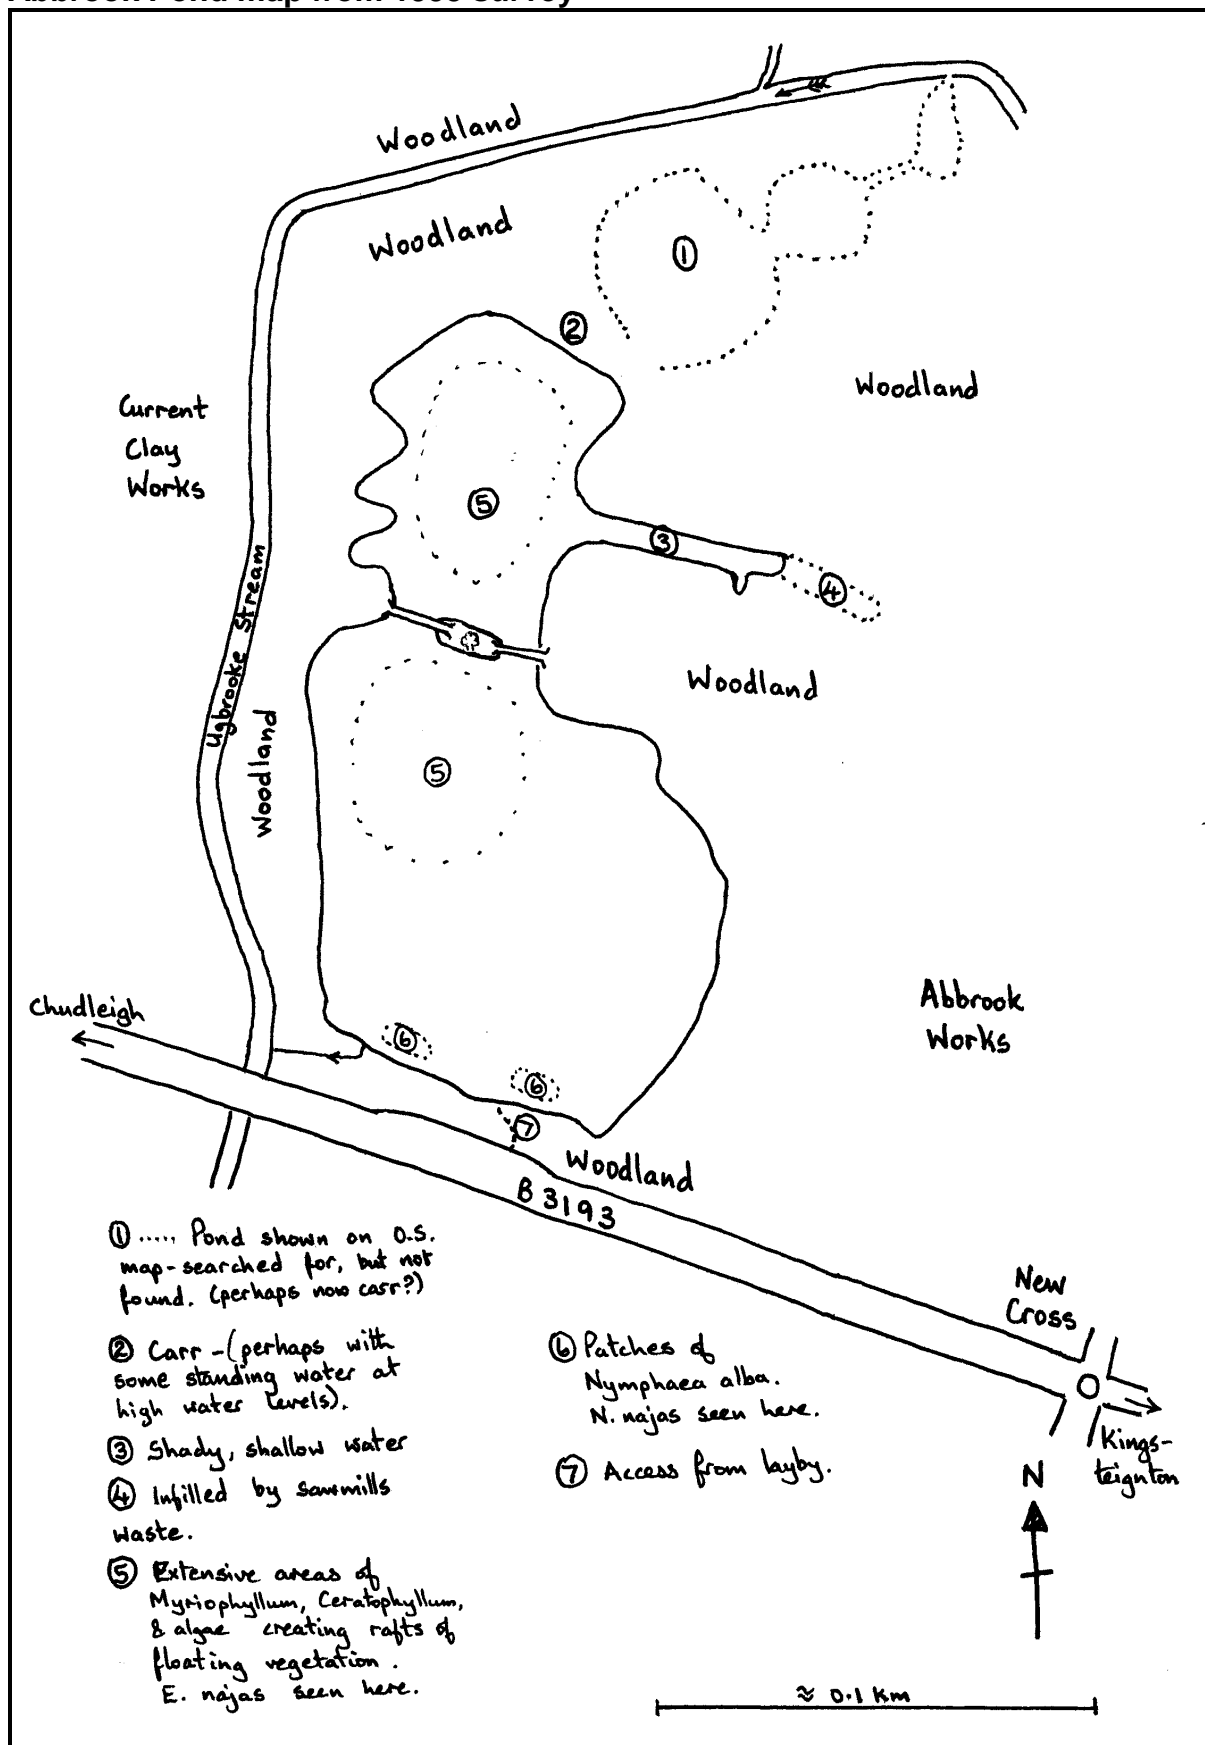 Woodland
Woodland
①
②
Woodland
Current
Clay
Works
⑤
③
④
Ugbrooke Stream
Woodland
Woodland
⑤
Chudleigh
Abbrook
Works
⑥
⑥
⑦
Woodland
B 3193
① ..... Pond shown on O.S.
map-searched for, but not
found. (perhaps now carr?)
② Carr - (perhaps with
some standing water at
high water levels).
③ Shady, shallow water
④ Infilled by sawmills
waste.
⑤ Extensive areas of
Myriophyllum, Ceratophyllum,
& algae creating rafts of
floating vegetation.
E. najas seen here.
⑥ Patches of
Nymphaea alba.
N. najas seen here.
⑦ Access from layby.
New
Cross
Kings-
teignton
N
≈ 0.1 km